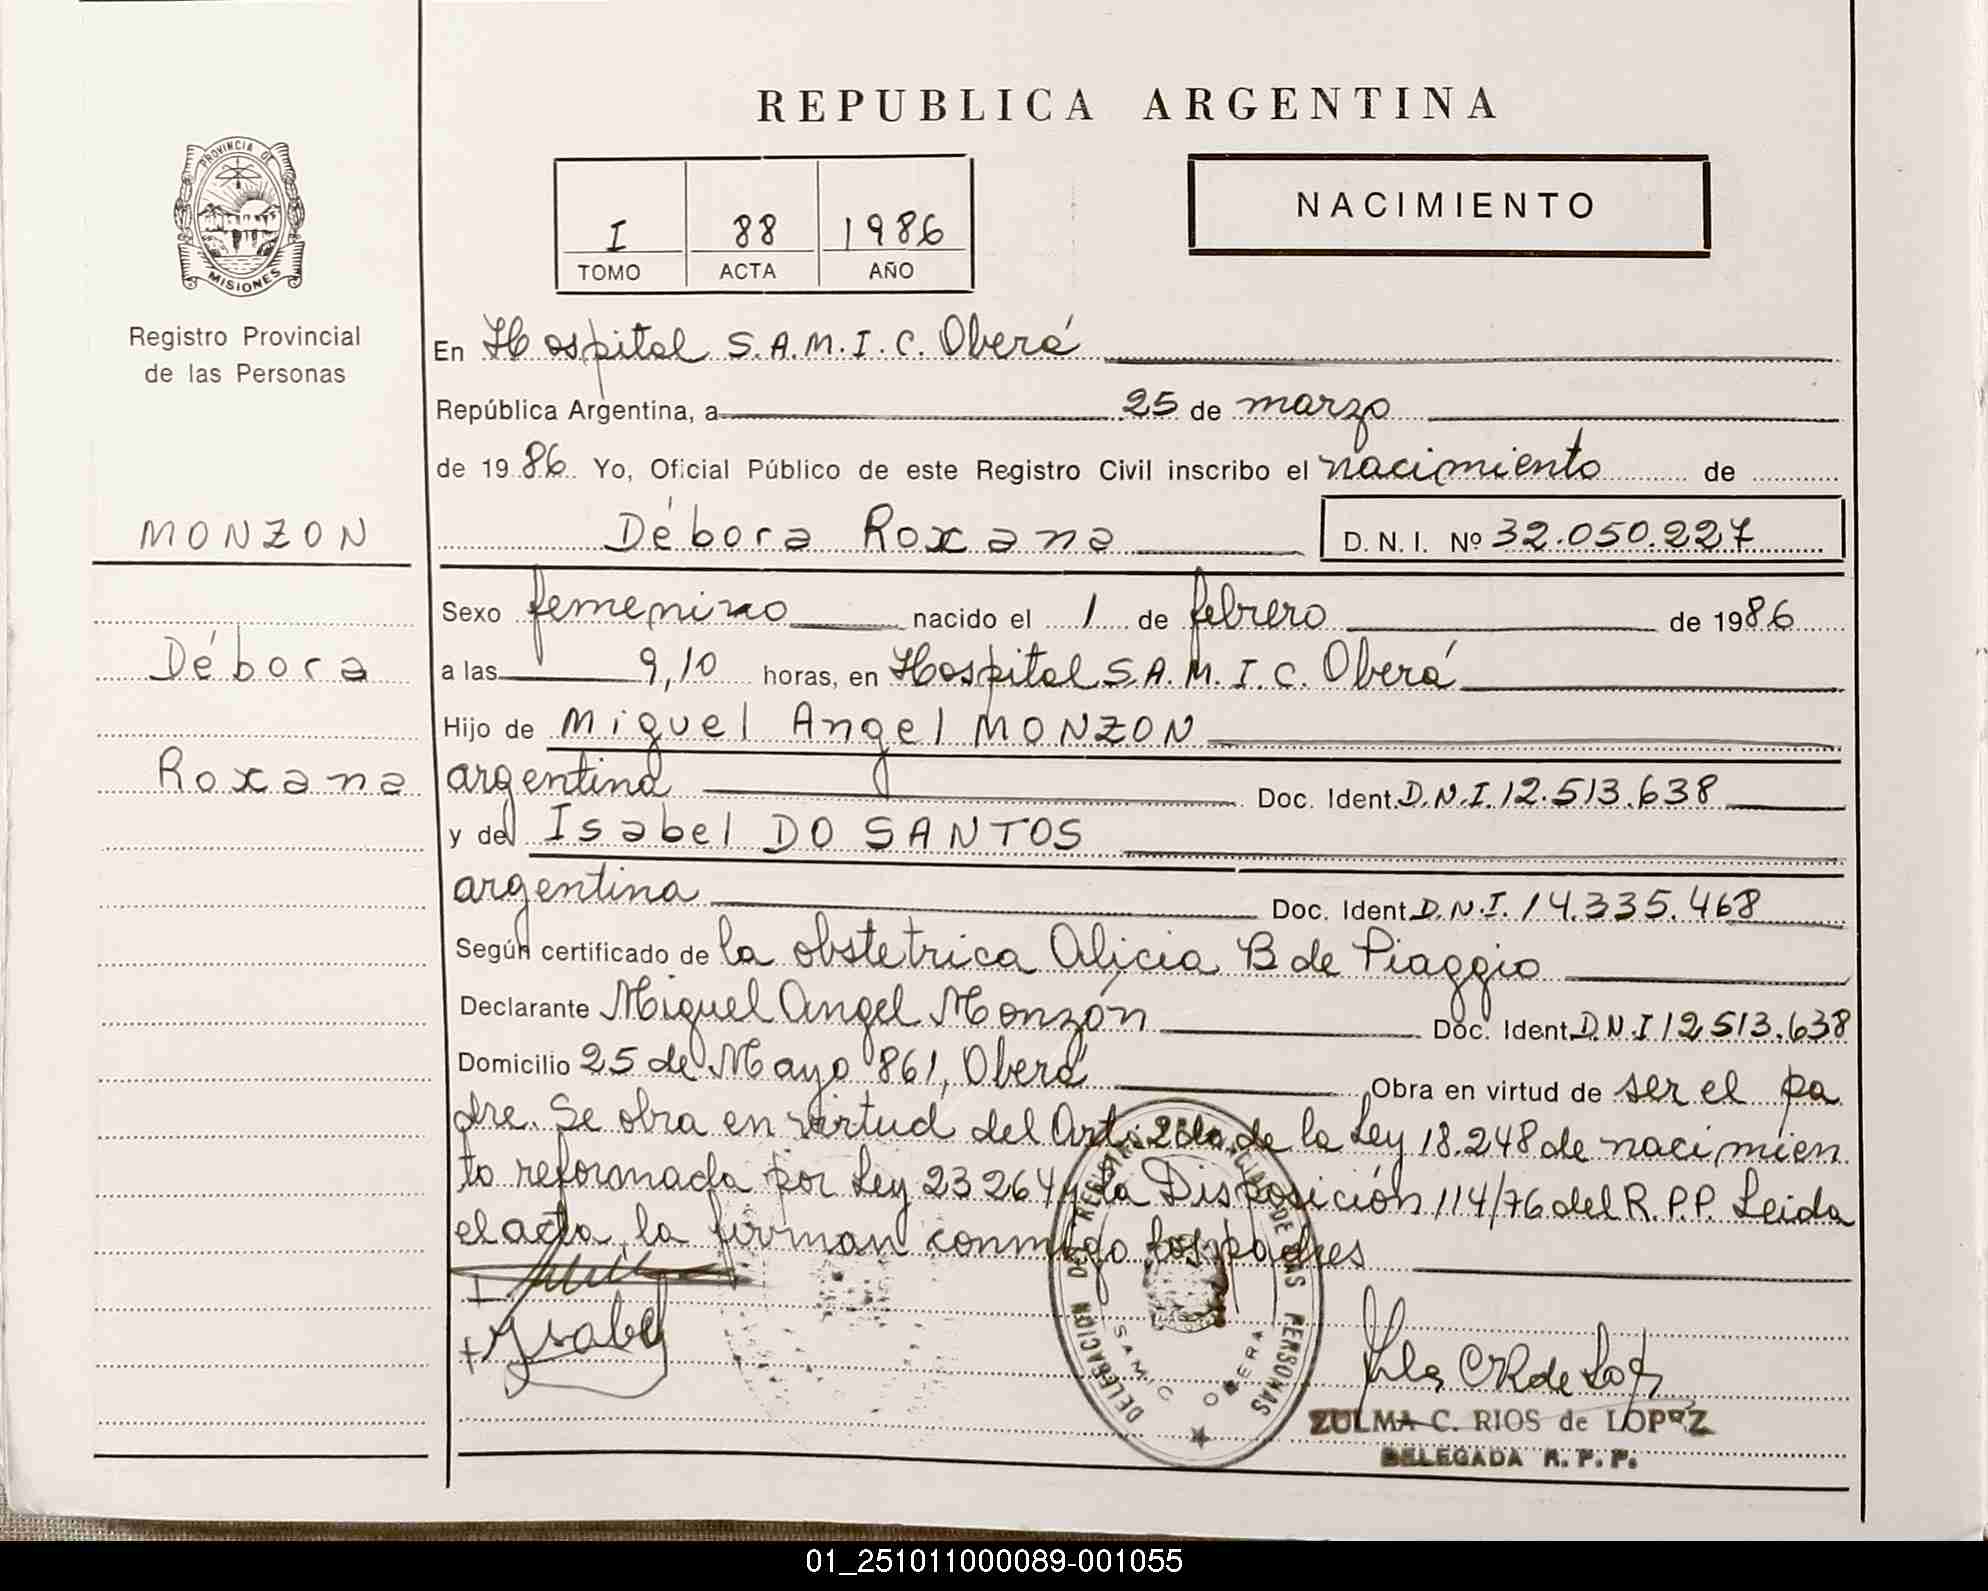 REPUBLICA ARGENTINA
PROVINCIA DE
MISIONES
Registro Provincial
de las Personas
I 88 1986
TOMO ACTA AÑO
NACIMIENTO
En Hospital S.A.M.I.C. Oberá
República Argentina, a 25 de marzo
de 1986 Yo, Oficial Público de este Registro Civil inscribo el nacimiento de
MONZON
Débora Roxana
D. N. I. Nº 32.050.227
Sexo femenino nacido el 1 de febrero de 1986
Débora
a las 9,10 horas, en Hospital S.A.M.I.C. Oberá
Hijo de Miguel Angel MONZON
Roxana
argentina Doc. Ident. D.N.I. 12.513.638
y de Isabel DO SANTOS
argentina Doc. Ident. D.N.I. 14.335.468
Según certificado de la obstetrica Alicia B de Piaggio
Declarante Miguel Angel Monzón Doc. Ident. D.N.I 12.513.638
Domicilio 25 de Mayo 861, Oberá Obra en virtud de ser el pa
dre. Se obra en virtud del Art. de la Ley 18.248 de nacimien
to reformada por Ley 23264 y la Disposición 114/76 del R.P.P. Leida
el acta, la firman conmigo los padres
Ysabel
DELEGACION DEL REGISTRO DE LAS PERSONAS
SAMIC OBERA
ZULMA C. RIOS de LOPEZ
DELEGADA R. P. P.
01_251011000089-001055